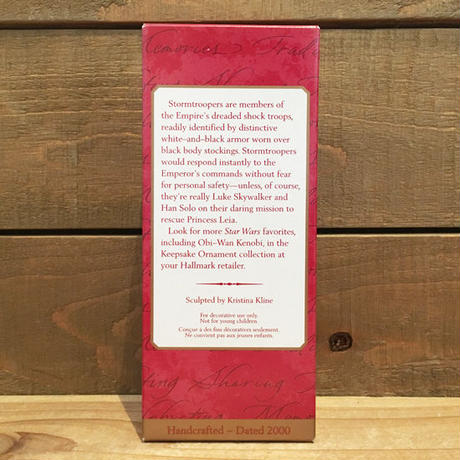 Memories
Stormtroopers are members of
the Empire's dreaded shock troops,
readily identified by distinctive
white–and–black armor worn over
black body stockings. Stormtroopers
would respond instantly to the
Emperor's commands without fear
for personal safety—unless, of course,
they're really Luke Skywalker and
Han Solo on their daring mission to
rescue Princess Leia.
Look for more Star Wars favorites,
including Obi–Wan Kenobi, in the
Keepsake Ornament collection at
your Hallmark retailer.
Sculpted by Kristina Kline
For decorative use only.
Not for young children
Conçur à des fins décoratives seulement.
Ne convient pas aux jeunes enfants.
Sharing
Handcrafted – Dated 2000